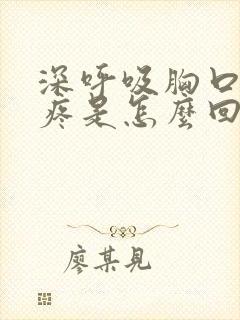 深呼吸胸口
疼是怎麼回
廖某見